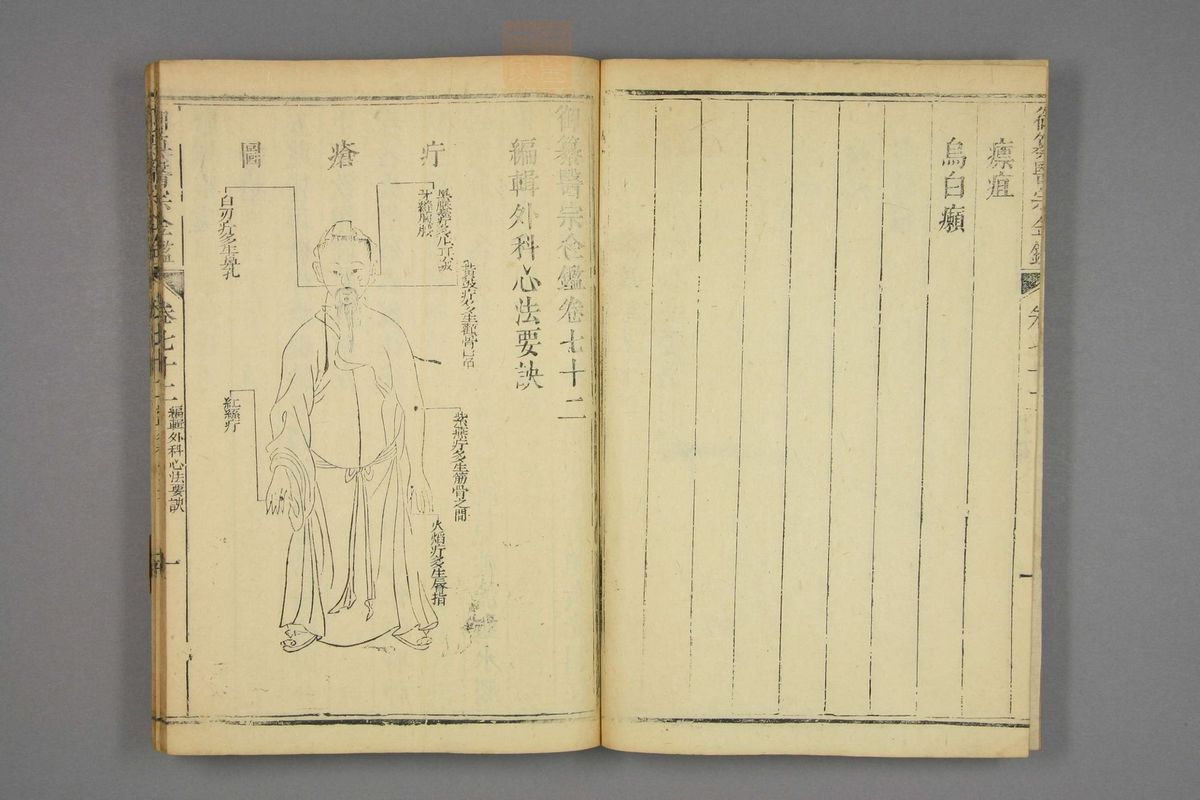 瘭疽
烏白癩
御纂醫宗金鑑卷七十二
編輯外科心法要訣
疔瘡圖
黃鼓疔多生顴骨口吻
白刃疔多生鼻孔
紫燕疔多生筋骨之間
火焰疔多生唇指
紅絲疔
御纂醫宗金鑑
卷七十二
編輯外科心法要訣
一
御纂醫宗金鑑
一